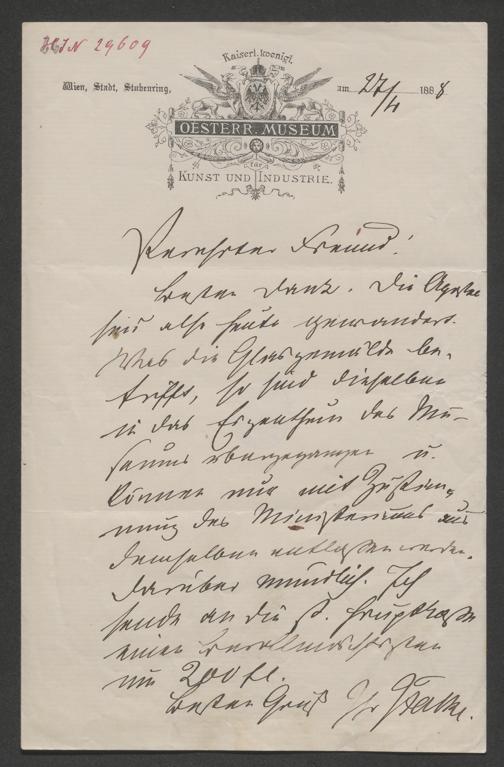 H.I.N 29609
Kaiserl. koenigl.
Wien, Stadt, Stubenring,
am 27/4 1888
OESTERR. MUSEUM
FÜR
KUNST UND INDUSTRIE.
Verehrter Freund!
Besten Dank. Die
sind also heute gewandert.
Was die Glasgemälde be-
trifft, so sind dieselben
in das Eigenthum des Mu-
seums übergegangen u.
können nur mit Zustim-
mung des Ministeriums aus
demselben entlassen werden.
Darüber mündlich. Ich
sende an die
einen
um 200 fl.
Besten Gruß Ihr JFalke.